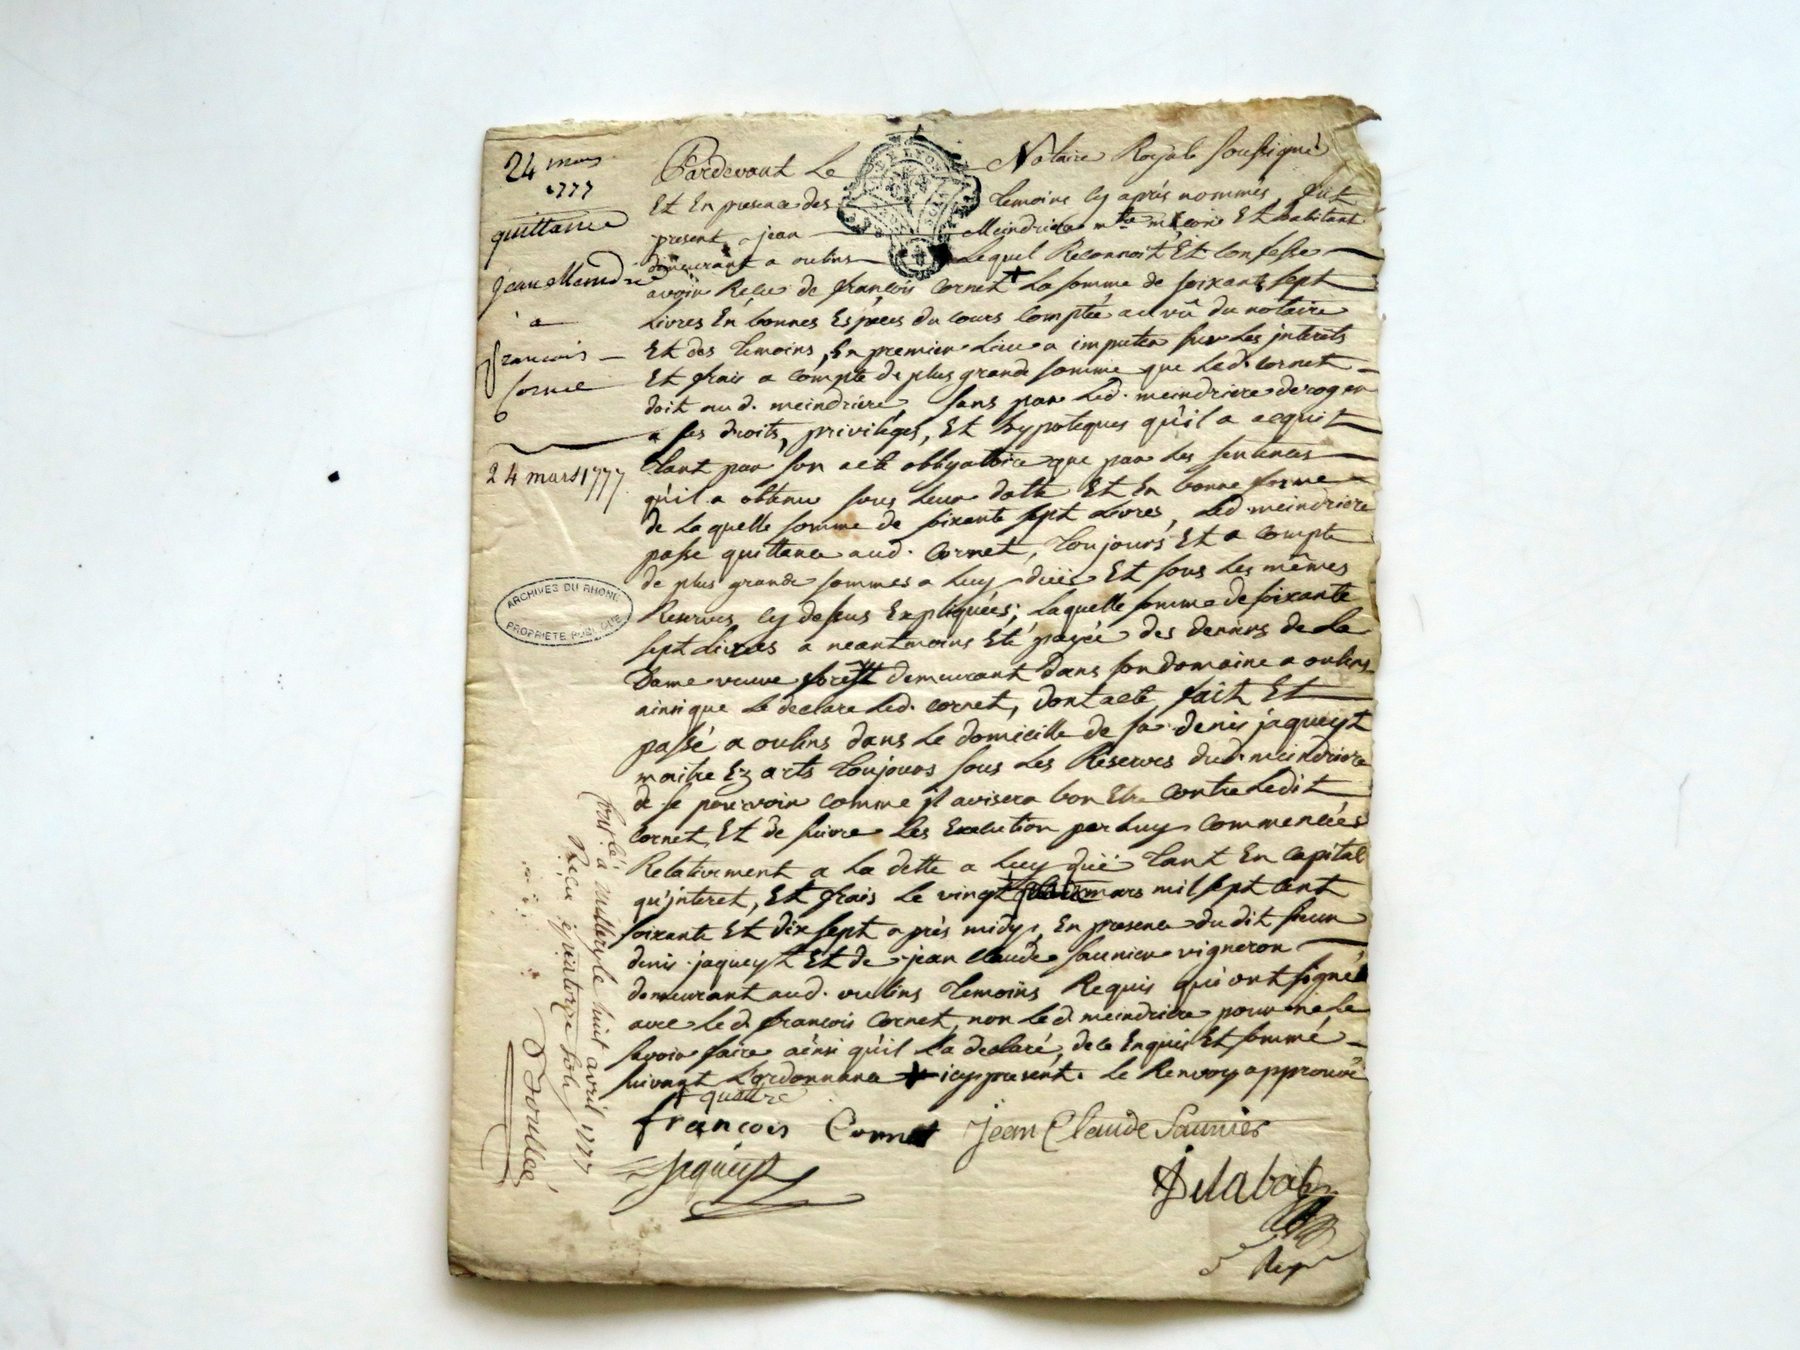 24 mars
1777
quittance
jean Meindrie
a
francois
Cornet
24 mars 1777
ARCHIVES DU RHONE
PROPRIETE PUBLIQUE
LYON
Pardevant Le Notaire Royale soussigné
Et En presence des temoins cy après nommés, fut
present jean Meindriere mtre maçon Et habitant
demeurant a oulins Lequel Reconnoit Et Confesse
avoir Reçu de françois Cornet + La somme de soixante sept
Livres En bonnes Espèces du cours Comptée au vû du notaire
Et des temoins, En premier Lieu a imputer sur Les jnterets
Et frais a compte de plus grande somme que Led. Cornet
doit aud. meindriere, sans par Led. meindriere deroger
a ses droits, privilèges, Et hypoteques qu'il a acquit
tant par son acte obligatoire que par Les sentences
qu'il a obtenu sous Leur datte Et En bonne forme
de Laquelle somme de soixante sept Livres, Led. meindriere
passe quittance aud. Cornet, toujours Et a compte
de plus grande sommes a Luy düe Et sous Les mêmes
Reserves cy dessus Expliquées; Laquelle somme de soixante
sept Livres a neantmoins Eté payée des deniers de La
Dame veuve demeurant dans son domaine a oulins
ainsi que Le declare Led. Cornet, dont acte, fait Et
passé a oulins dans Le domicille de sr. denis jaqueyt
maitre Ez arts toujours sous Les Réserves dud. meindriere
de se pourvoir comme jl avisera bon Etre Contre Ledit
Cornet, Et de suivre Les Execution par Luy Commencées
Relativement a La dette a Luy düe tant En Capital
qu'jnteret, Et frais Le vingt mars mil sept cent
soixante Et dix sept après midy, En presence du dit sieur
denis jaqueyt Et de jean Claude saunier vigneron
demeurant aud. oulins temoins Requis qui ont signé
avec Led. françois Cornet, non Led. meindriere pour ne Le
savoir faire ainsi qu'il L'a declaré, de ce Enquis Et sommé
suivant L'ordonnance + icy present. Le Renvoy approuvé
+ quattre
françois Cornet jean Claude Saunier
Jaqueyt
Delabat
Contlé a Millery le huit avril 1777
Reçu quatorze sols